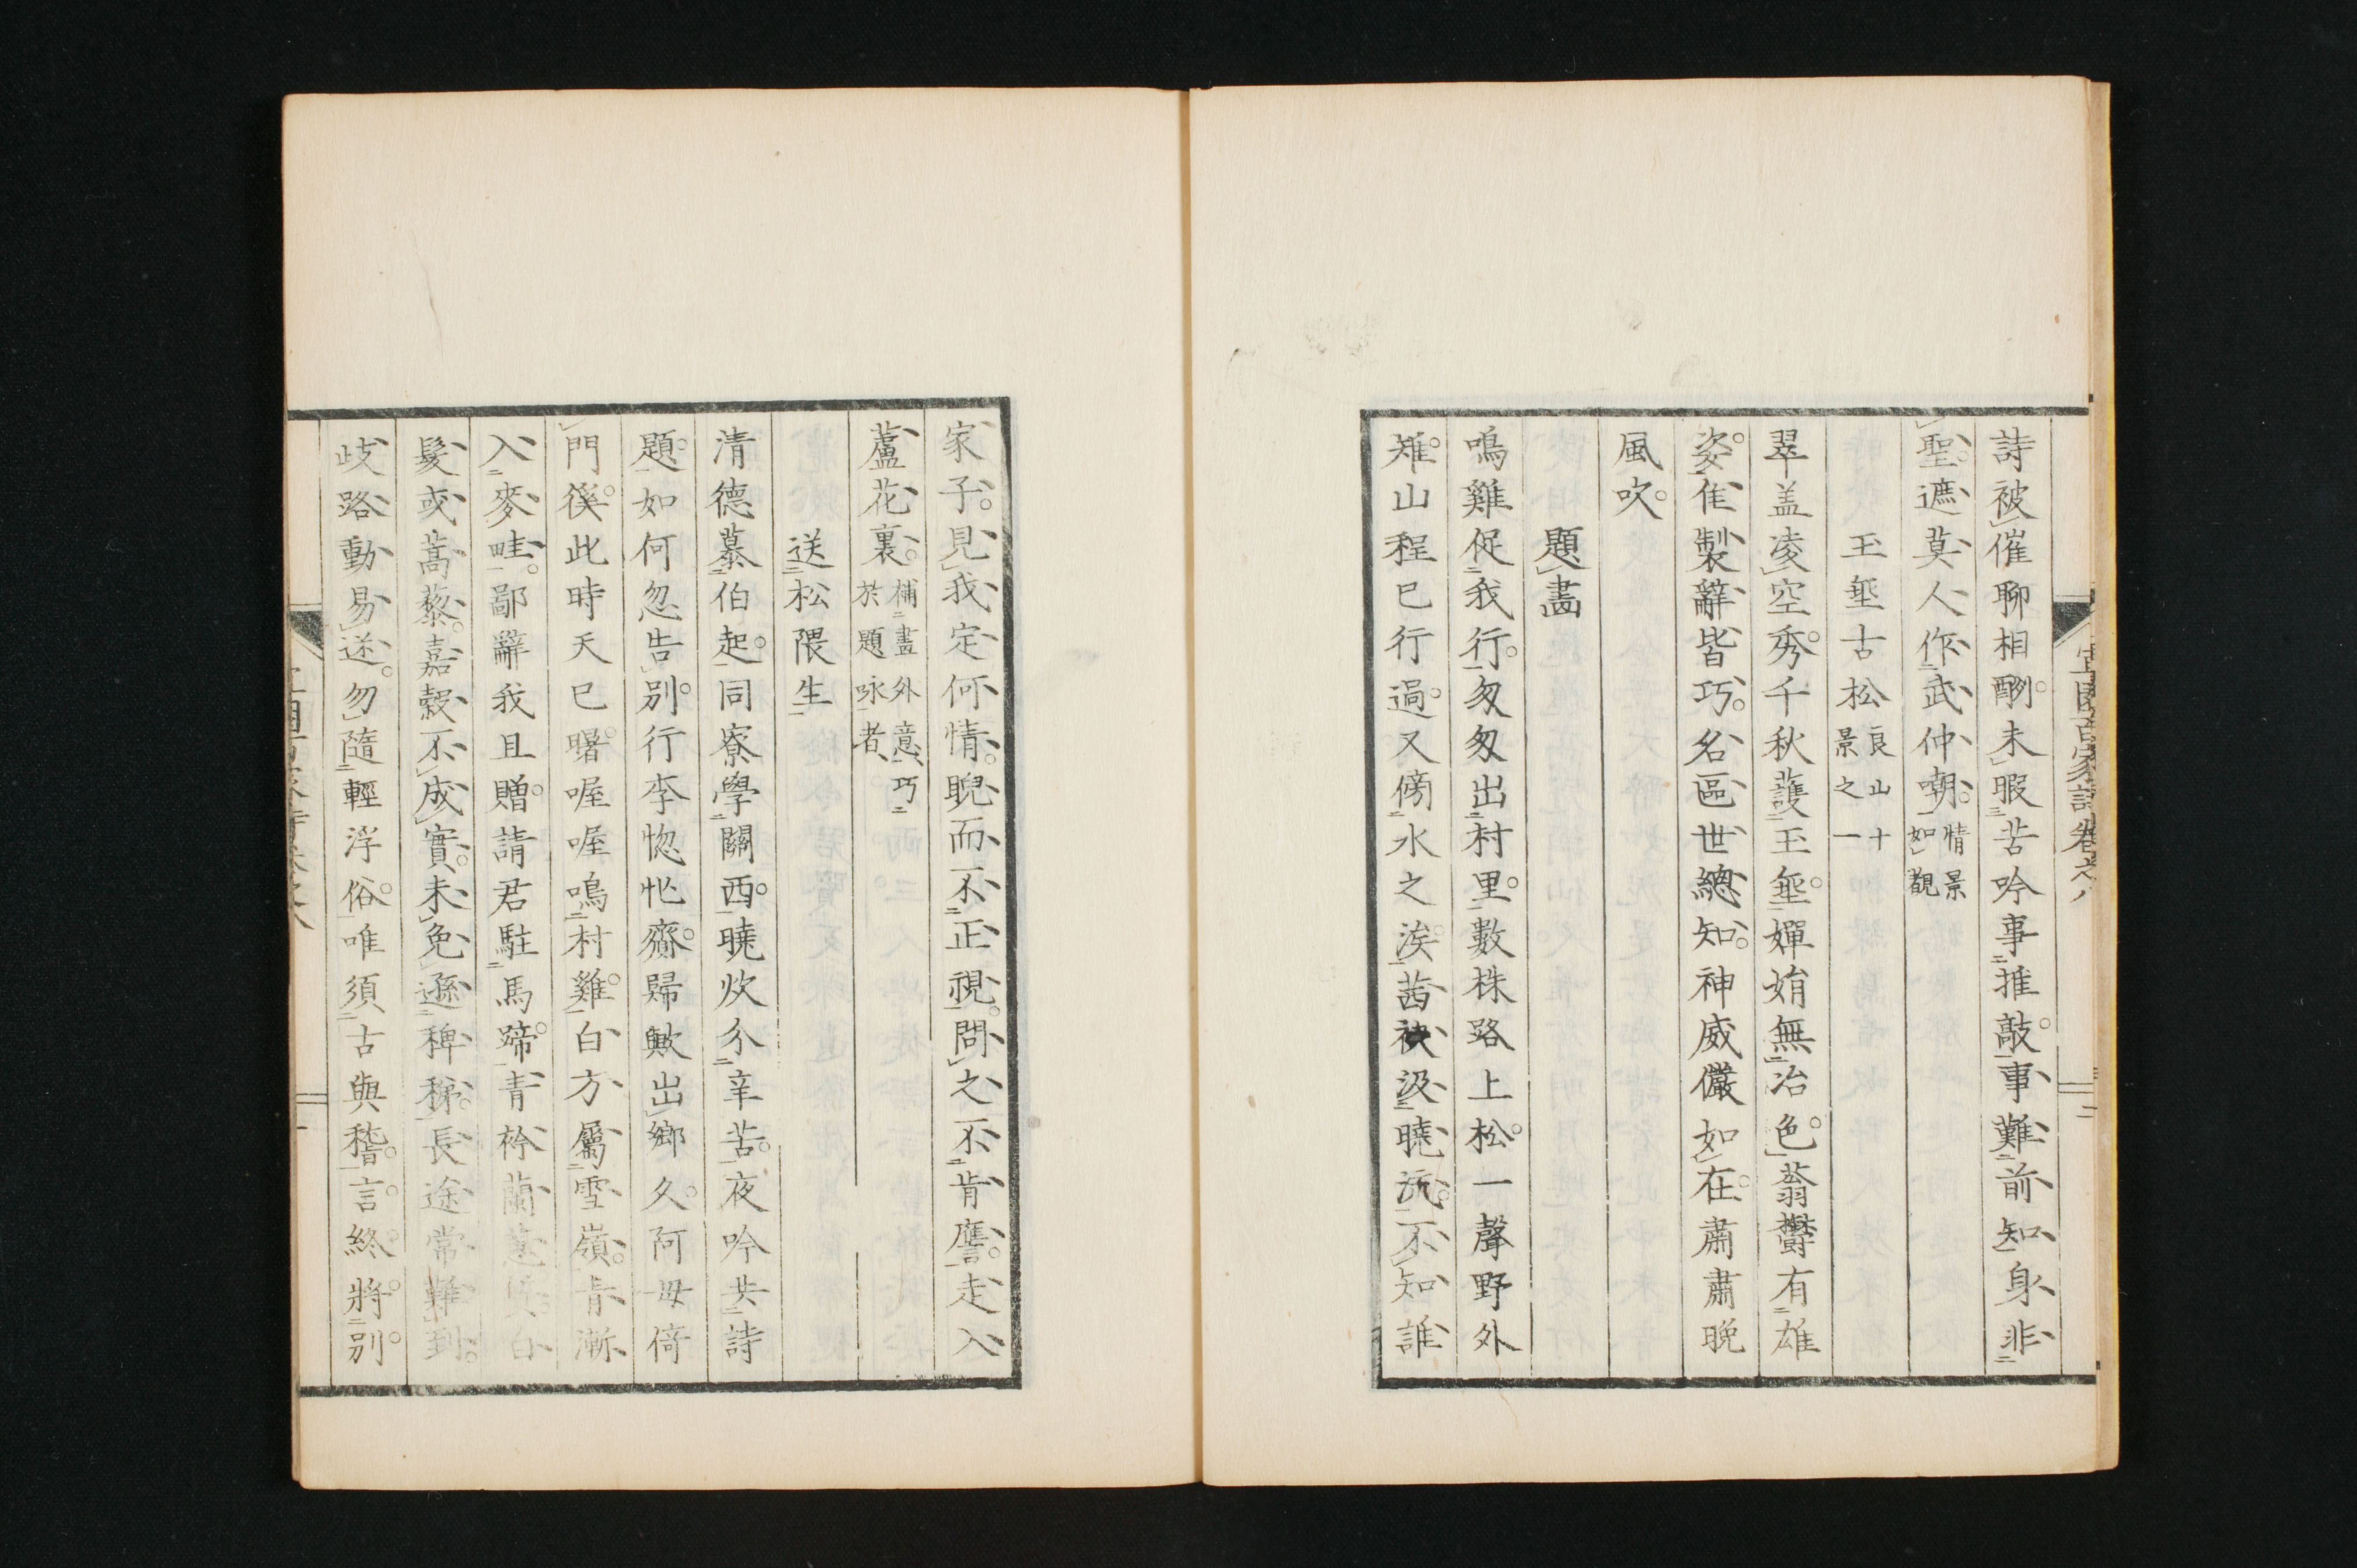 宜園百家詩卷之八
詩被催聊相酬未暇苦吟事推敲事難前知身非
聖遮莫人作武仲嘲情景如觀
玉垂古松良山十景之一
翠盖凌空秀千秋護玉垂嬋娟無冶色蓊欝有雄
姿隹製辭皆巧名區世總知神威儼如在肅肅晚
風吹
題畵
鳴雞促我行匆匆出村里數株路上松一聲野外
雉山程已行過又傍水之涘茜袂汲曉流不知誰
家子見我定何情睨而不正視問之不肯譍走入
蘆花裏補畫外意巧於題咏者
送松隈生
清德慕伯起同寮學關西曉炊分辛苦夜吟共詩
題如何忽告別行李惚忙齎歸歟出鄉久阿母倚
門徯此時天已曙喔喔鳴村雞白方屬雪嶺青漸
入麥畦鄙辭我且贈請君駐馬蹄青衿蘭蕙質白
髮或蒿藜嘉穀不成實未免遜稗稊長途常難到
歧路動易迷勿隨輕浮俗唯須古與稽言終將別